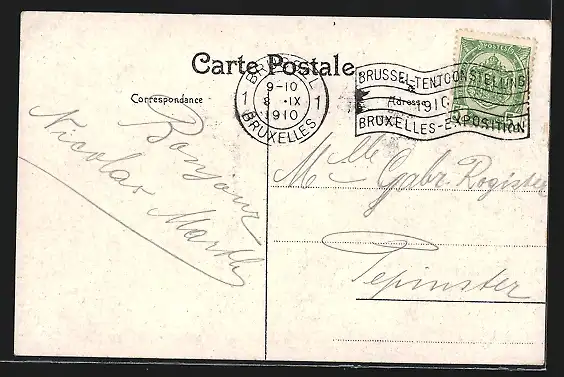 Carte Postale
BRUSSEL
9-10
1 8 IX 1
1910
BRUXELLES
BRUSSEL-TENTOONSTELLING
1910
BRUXELLES-EXPOSITION
POSTES
5
Correspondance
Adresse
Bonjour
Nicolas Marth
Mlle Gabr. Rogister
Pepinster